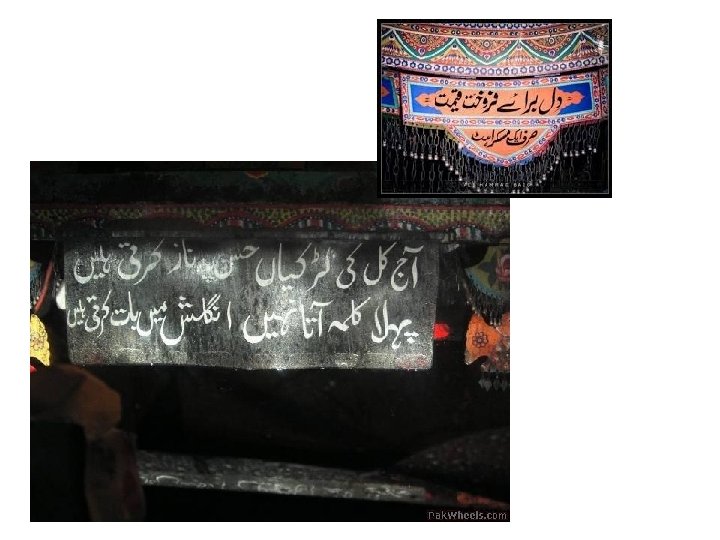 دل برائے فروخت قیمت
صرف ایک مسکراہٹ
آج کل کی لڑکیاں حسن پہ ناز کرتی ہیں
پہلا کلمہ آتا نہیں انگلش میں بات کرتی ہیں
PakWheels.com